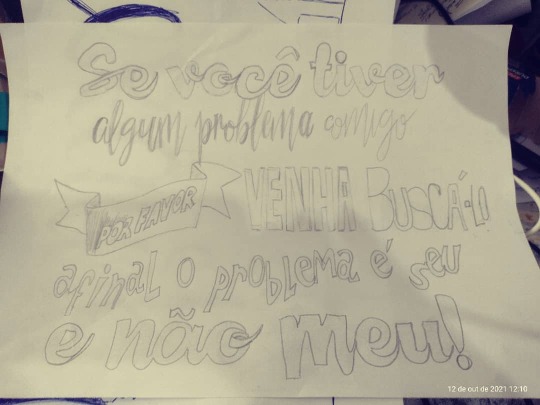 Se você tiver
algum problema comigo
POR FAVOR VENHA BUSCÁ-LO
afinal o problema é seu
e não meu!
12 de out de 2021 12:10